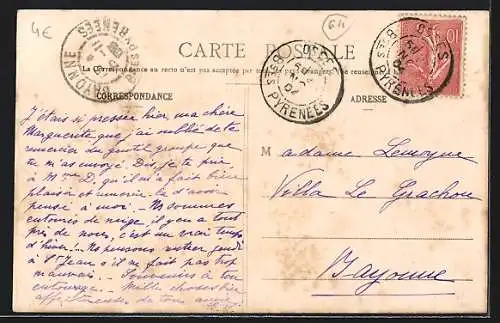 4€
64
CARTE POSTALE
La Correspondance au recto n'est pas acceptée par tous les pays étrangers.
CORRESPONDANCE
ADRESSE
OSSES
BSES PYRENEES
OSSES
BSES PYRENEES
BAYONNE
10
J'étais si pressée hier ma chère
Marguerite que j'ai oublié de te
remercier du gentil groupe que
tu m'as envoyé. Dis, je te prie
à Mme D, qu'il m'a fait bien
plaisir et remercie-la d'avoir
pensé à moi. - Nous sommes
entourés de neige il y en a tout
près de nous, c'est un vrai temps
d'hiver. - Nous pensons rester jeudi
à St Jean s'il ne fait pas trop
mauvais. - Souvenirs à ton
entourage. - Mille choses bien
aff. de ton amie
Madame Lemoyne
Villa Le Grachou
Bayonne